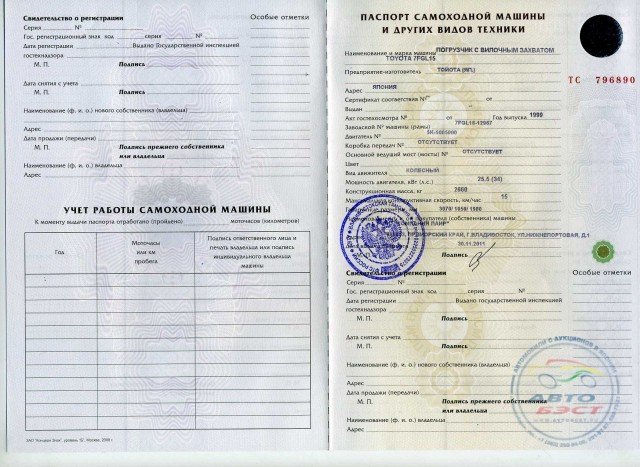 Свидетельство о регистрации
Особые отметки
Серия № серия №
Гос. регистрационный знак код
Дата регистрации Выдано Государственной инспекцией
гостехнадзора
М. П. Подпись
Дата снятия с учета
М. П. Подпись
Наименование (ф. и. о.) нового собственника (владельца)
Адрес
Дата продажи (передачи)
М. П. Подпись прежнего собственника
или владельца
Наименование (ф. и. о.) владельца
Адрес
УЧЕТ РАБОТЫ САМОХОДНОЙ МАШИНЫ
К моменту выдачи паспорта отработано (пройдено) моточасов (километров)
Год
Моточасы
или км
пробега
Подпись ответственного лица и
печать владельца или подпись
индивидуального владельца
машины
ПАСПОРТ САМОХОДНОЙ МАШИНЫ
И ДРУГИХ ВИДОВ ТЕХНИКИ
Наименование и марка машины ПОГРУЗЧИК С ВИЛОЧНЫМ ЗАХВАТОМ
TOYOTA 7FGL15
Предприятие-изготовитель
ТС 796890
Адрес ЯПОНИЯ
Сертификат соответствия № от
Выдан
Акт гостехосмотра № от Год выпуска 1999
Заводской № машины (рамы) 7FGL15-12967
Двигатель №
Коробка передач № ОТСУТСТВУЕТ
Основной ведущий мост (мосты) № ОТСУТСТВУЕТ
Цвет
Вид движителя КОЛЕСНЫЙ
Мощность двигателя, кВт (л.с.) 25.0 (34)
Конструкционная масса, кг
скорость, км/час 15
(собственника) машины
КРАЙ, Г.ВЛАДИВОСТОК, УЛ.НИЖНЕПОРТОВАЯ, Д.1
30.11.2011
Подпись
Свидетельство о регистрации
Особые отметки
Серия №
Гос. регистрационный знак код серия №
Дата регистрации Выдано Государственной инспекцией
гостехнадзора
М. П. Подпись
Дата снятия с учета
М. П. Подпись
Наименование (ф. и. о.) нового собственника (владельца)
Адрес
Дата продажи (передачи)
М. П. Подпись прежнего собственника
или владельца
Наименование (ф. и. о.) владельца
Адрес
АВТОМОБИЛИ С АУКЦИОНОВ
АВТО
БЭСТ